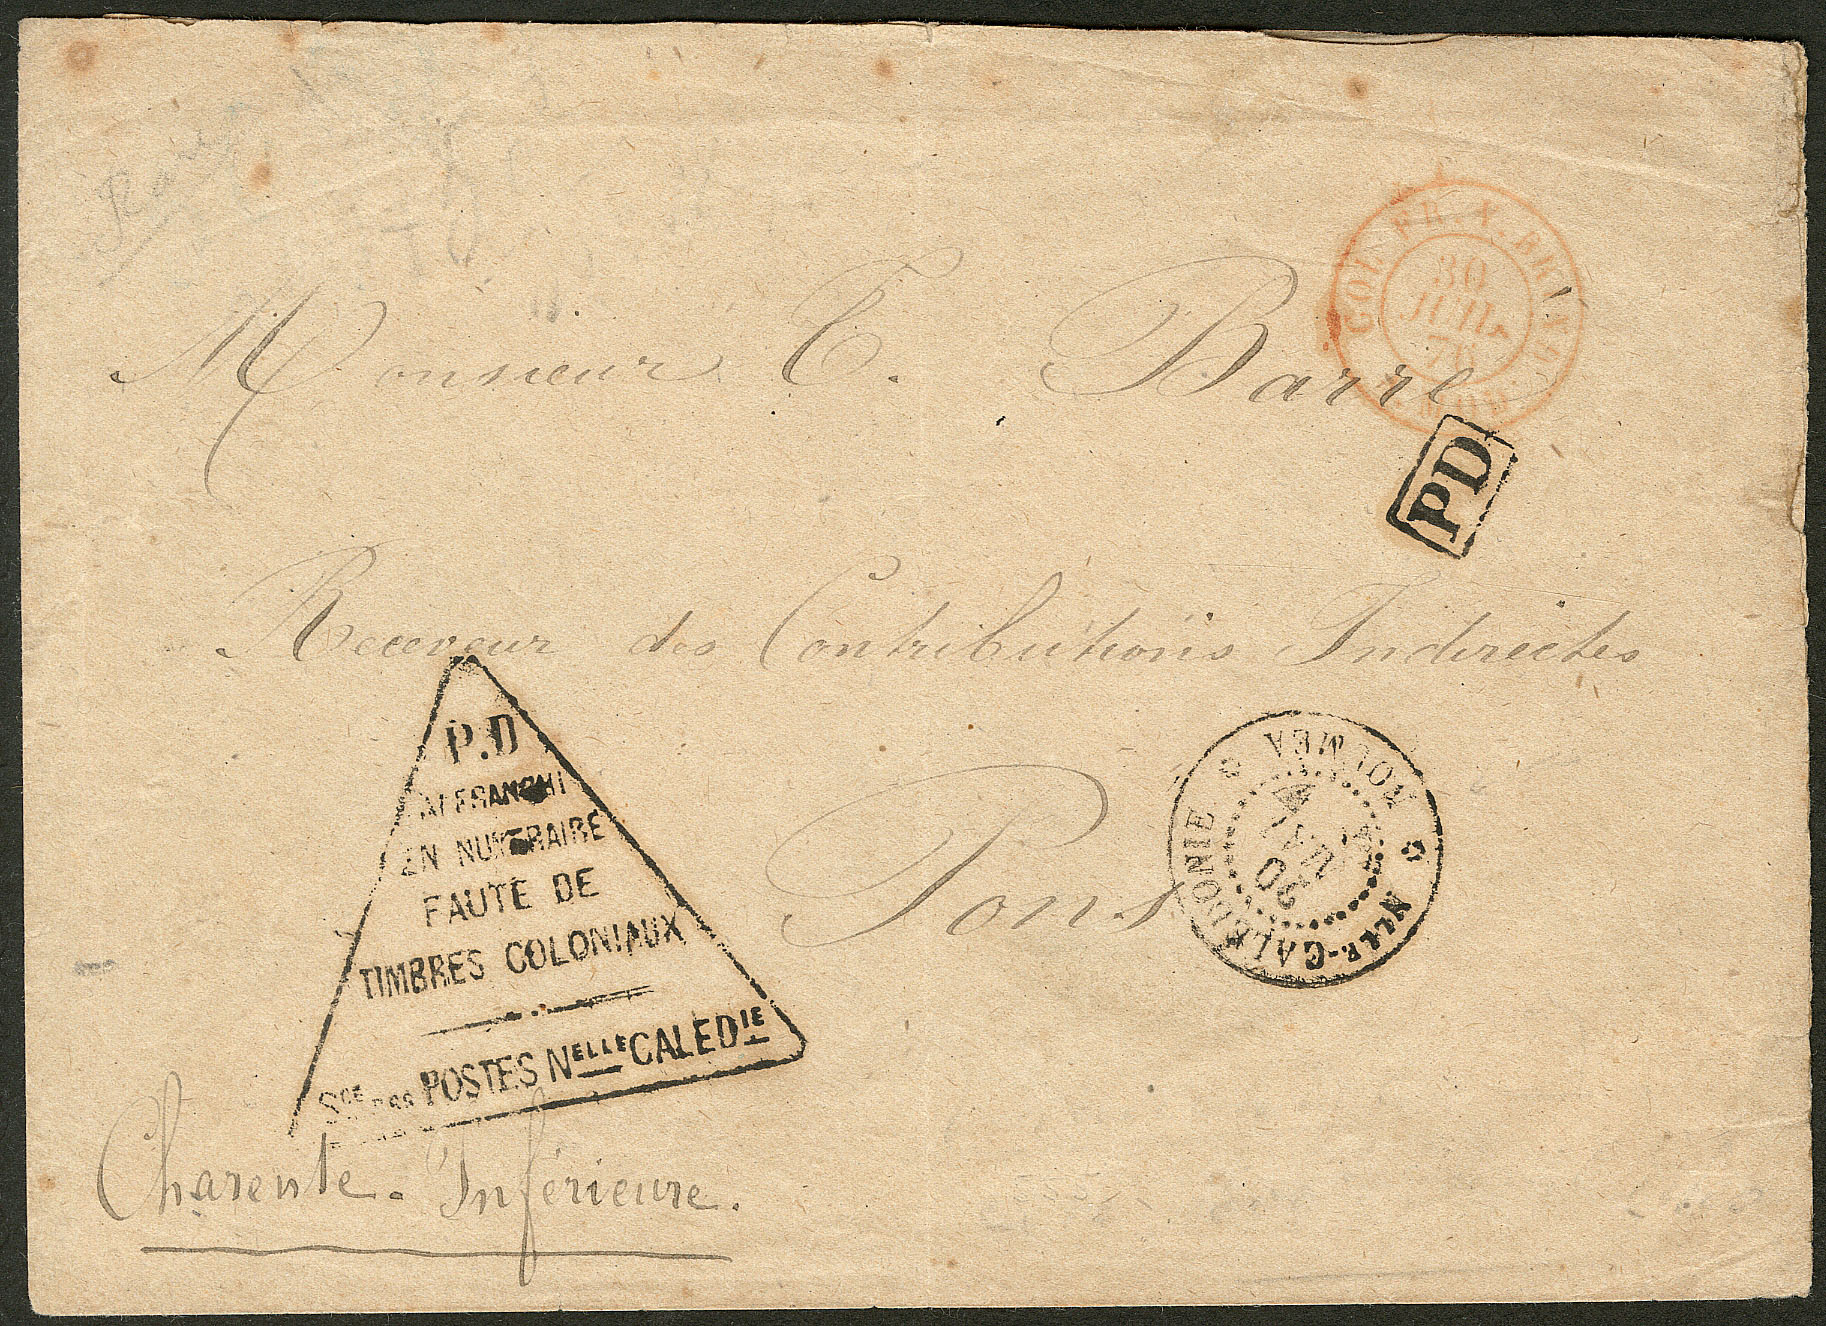 COL. FR. V. BRINDISI
30
JUIL.
76
A MOD.
Monsieur E. Barre
PD
Receveur des Contributions Indirectes
P.D
AFFRANCHI
EN NUMERAIRE
FAUTE DE
TIMBRES COLONIAUX
Sce DES POSTES Nelle CALEDIE
Pons
NOUMEA
20
NLLE-CALEDONIE
Charente-Inférieure.